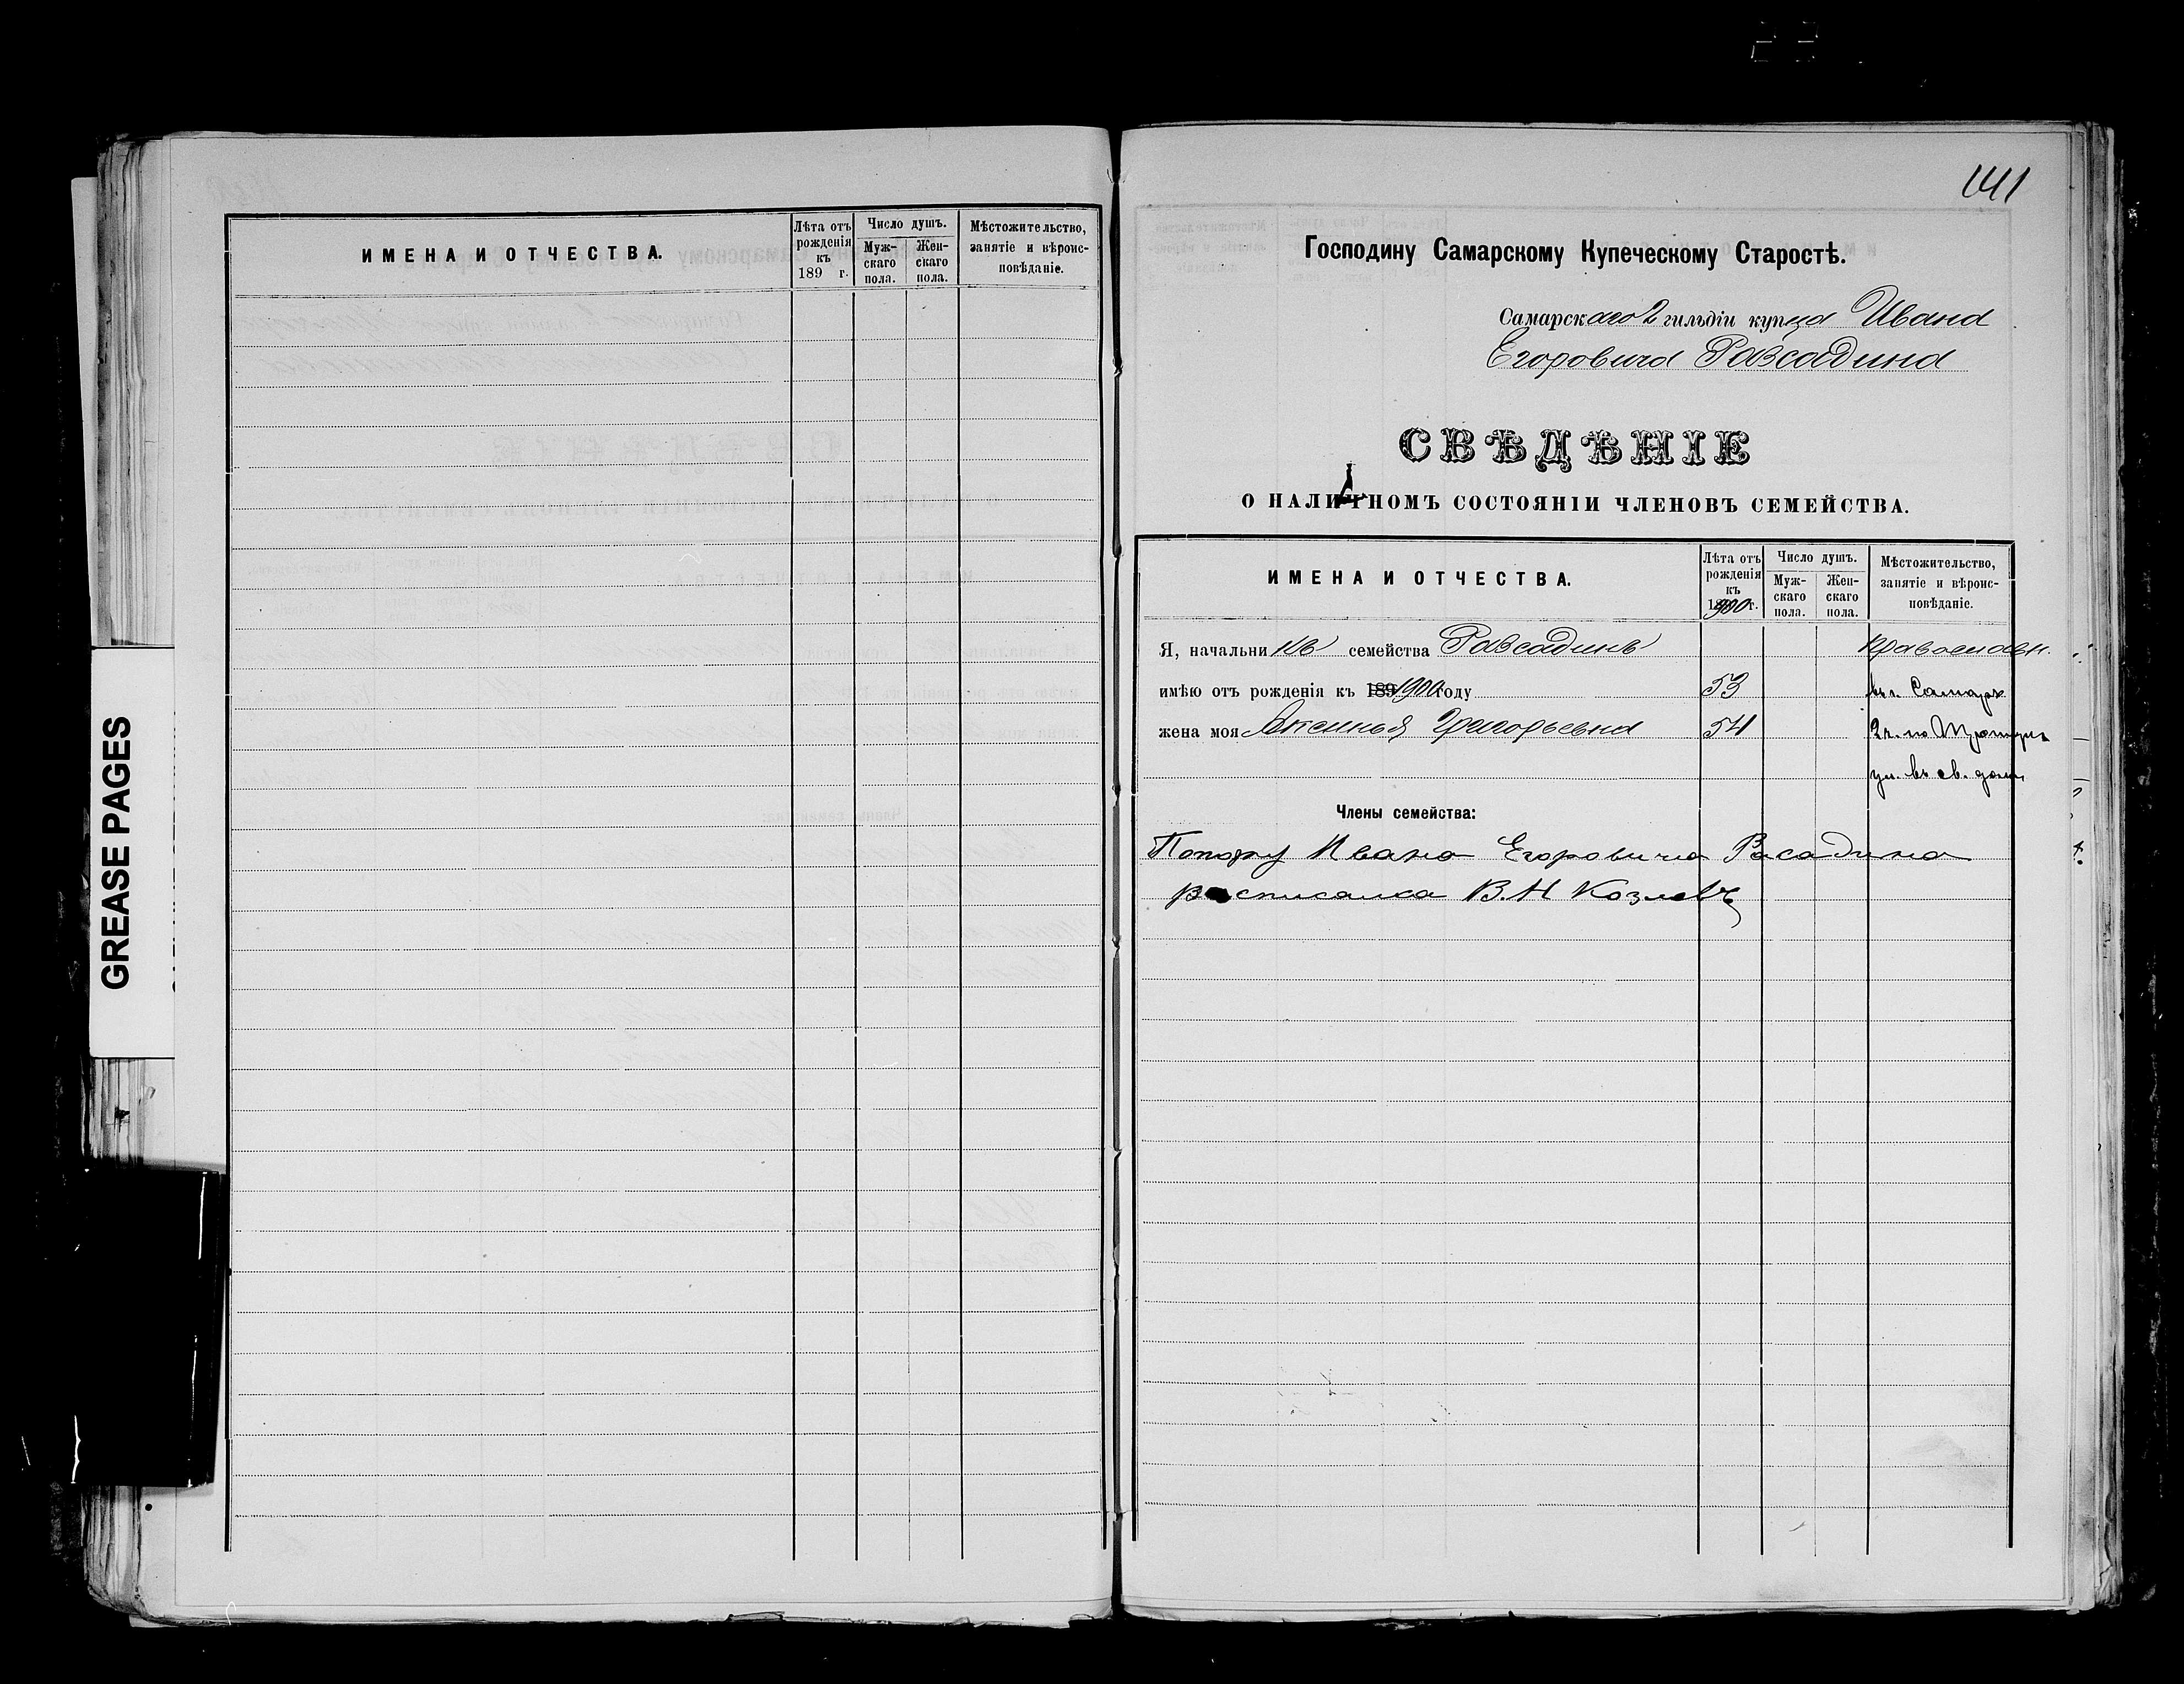 GREASE PAGES
ИМЕНА И ОТЧЕСТВА.
Лѣта отъ рожденія къ 189 г.
Число душъ.
Мужскаго пола.
Женскаго пола.
Мѣстожительство, занятіе и вѣроисповѣданіе.
141
Господину Самарскому Купеческому Старостѣ.
Самарскаго 2 гильдіи купца Ивана
Егоровича Разсадина
СВѢДѢНІЕ
О НАЛИЧНОМЪ СОСТОЯНІИ ЧЛЕНОВЪ СЕМЕЙСТВА.
ИМЕНА И ОТЧЕСТВА.
Лѣта отъ
рожденія
къ
1900 г.
Число душъ.
Муж-
скаго
пола.
Жен-
скаго
пола.
Мѣстожительство,
занятіе и вѣроис-
повѣданіе.
Я, начальникъ семейства Разсадинъ православн.
имѣю отъ рожденія къ 189 1900 году 53 въ г. Самарѣ
жена моя Аксинья Григорьевна 54 2 ч. по
ул. въ св. домѣ
Члены семейства:
Ивана Егоровича Расадина
росписалса В.Н Козловъ